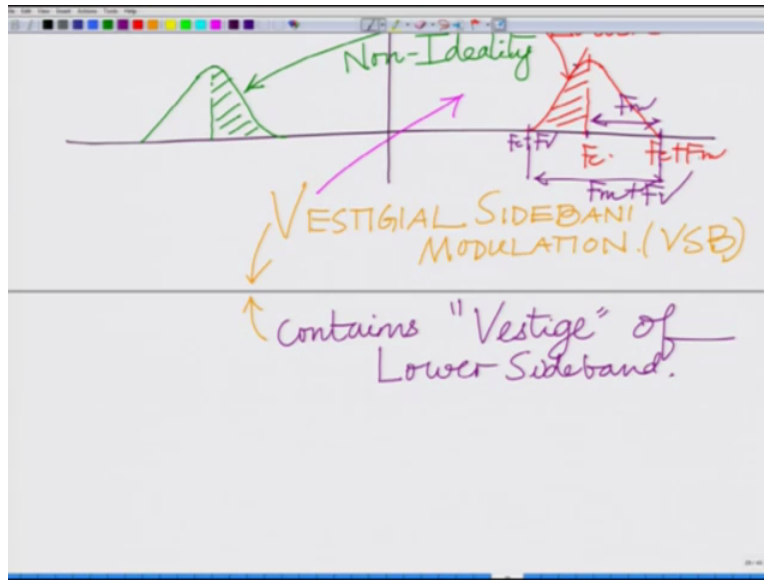 Non-Ideality
Fm
Fc-Fv
Fc.
Fc+Fm
Fm+Fv
VESTIGIAL SIDEBAND
MODULATION. (VSB)
Contains "Vestige" of
Lower Sideband.